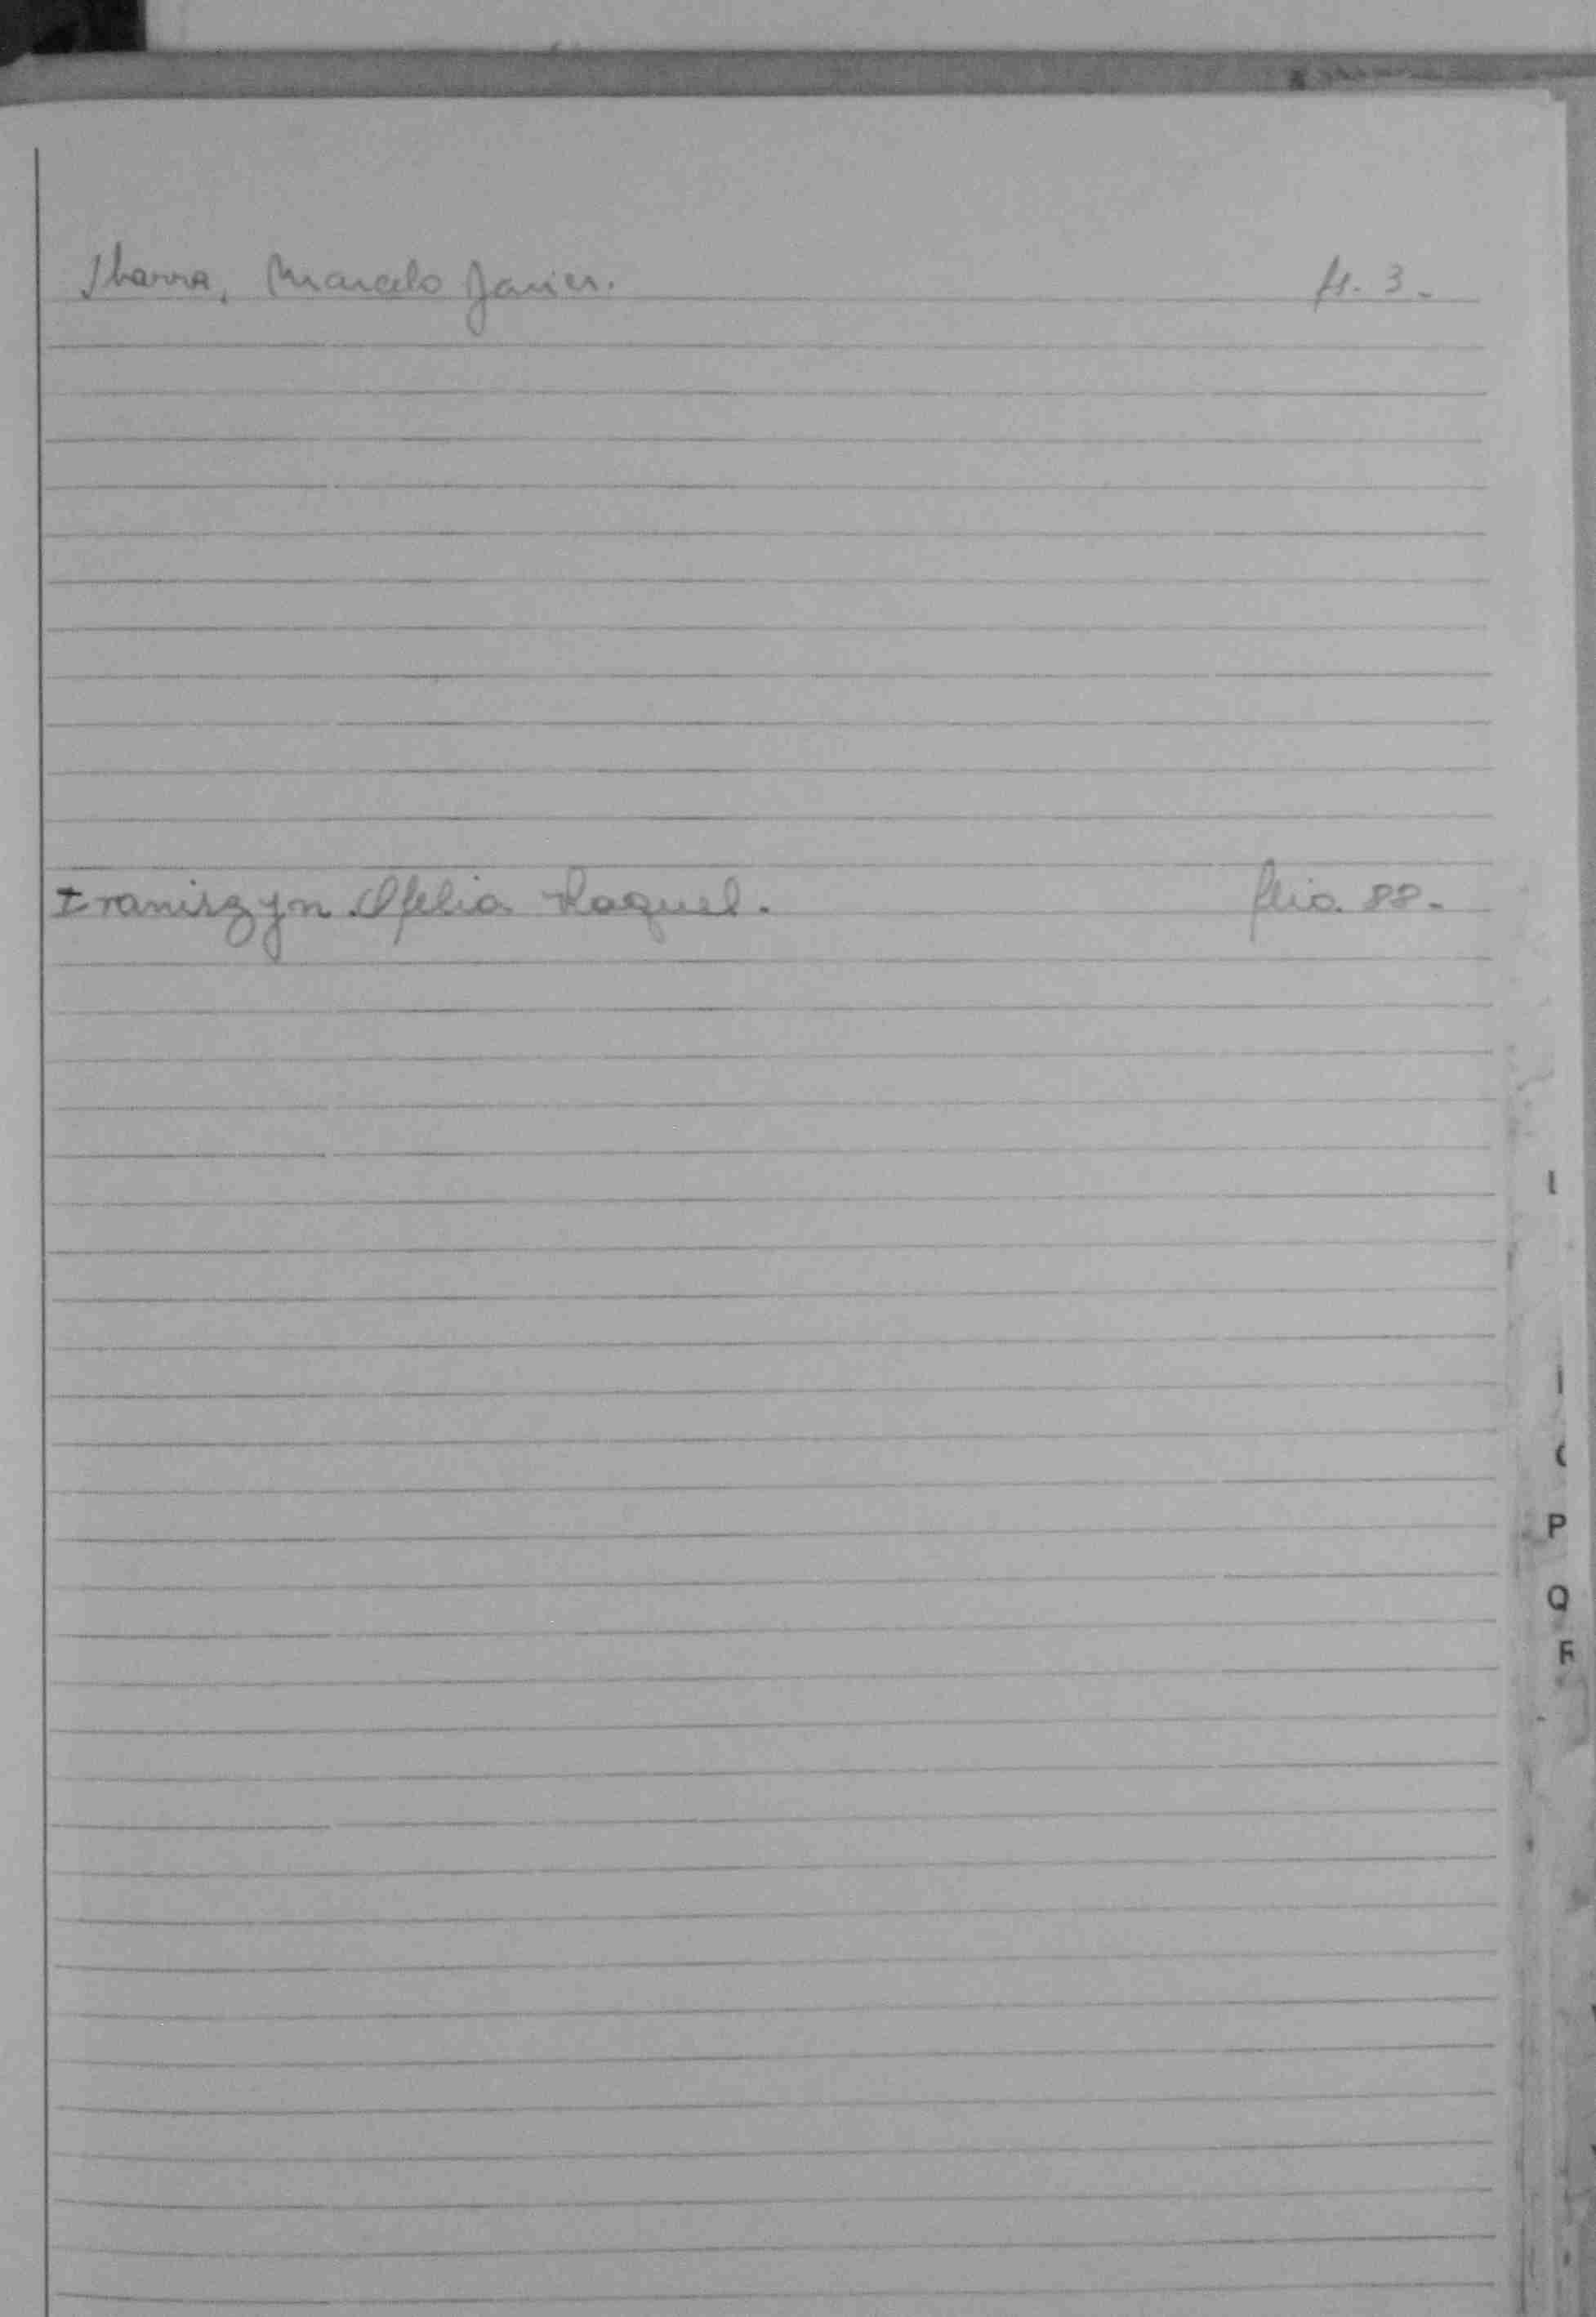 Ibarra, Marcelo Javier. fs. 3.-
Iraniszyn Ofelia Raquel. folio. 88.-
I
P
Q
R